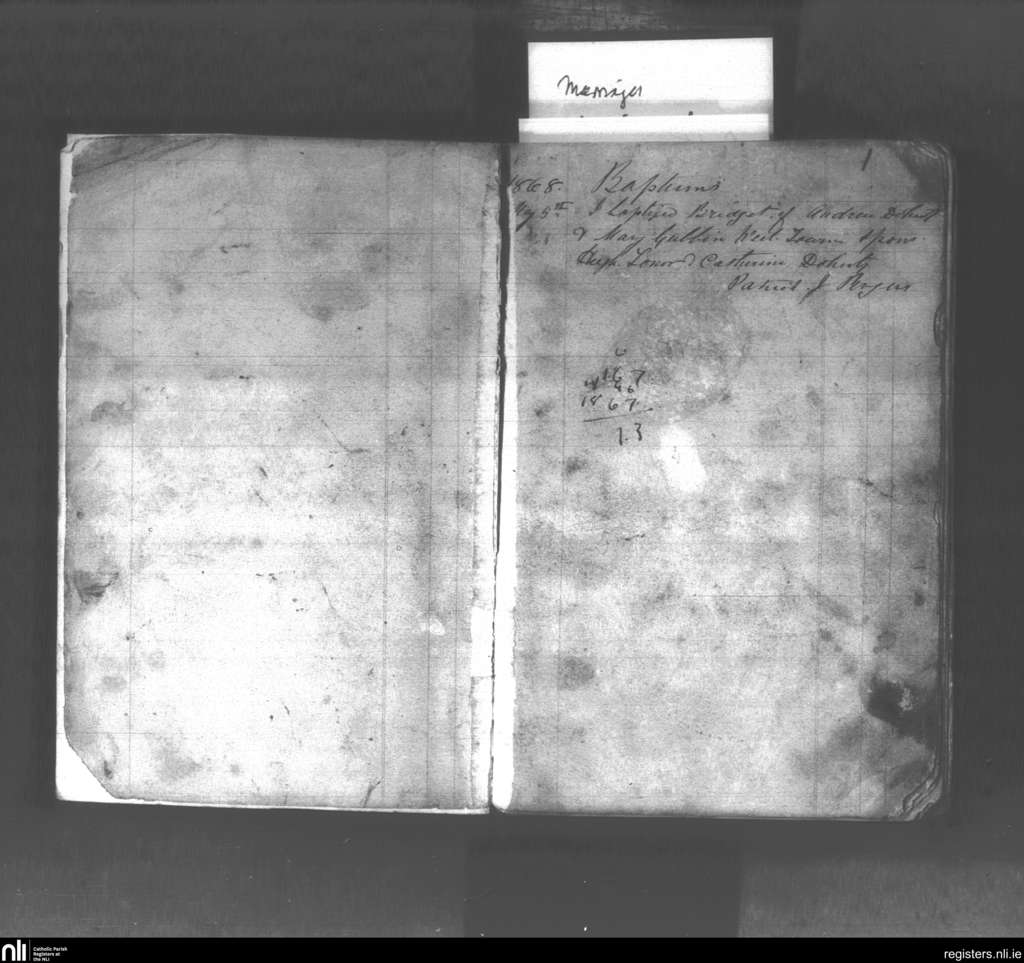 Marriages
1
1868. Baptisms
5th I baptized Bridget of Andrew Dohert
& Mary West Town Spons.
Hugh & Catherine Doherty
Patrick J Rogers
167
46
1867
13
nli Catholic Parish
Registers at
the NLI
registers.nli.ie